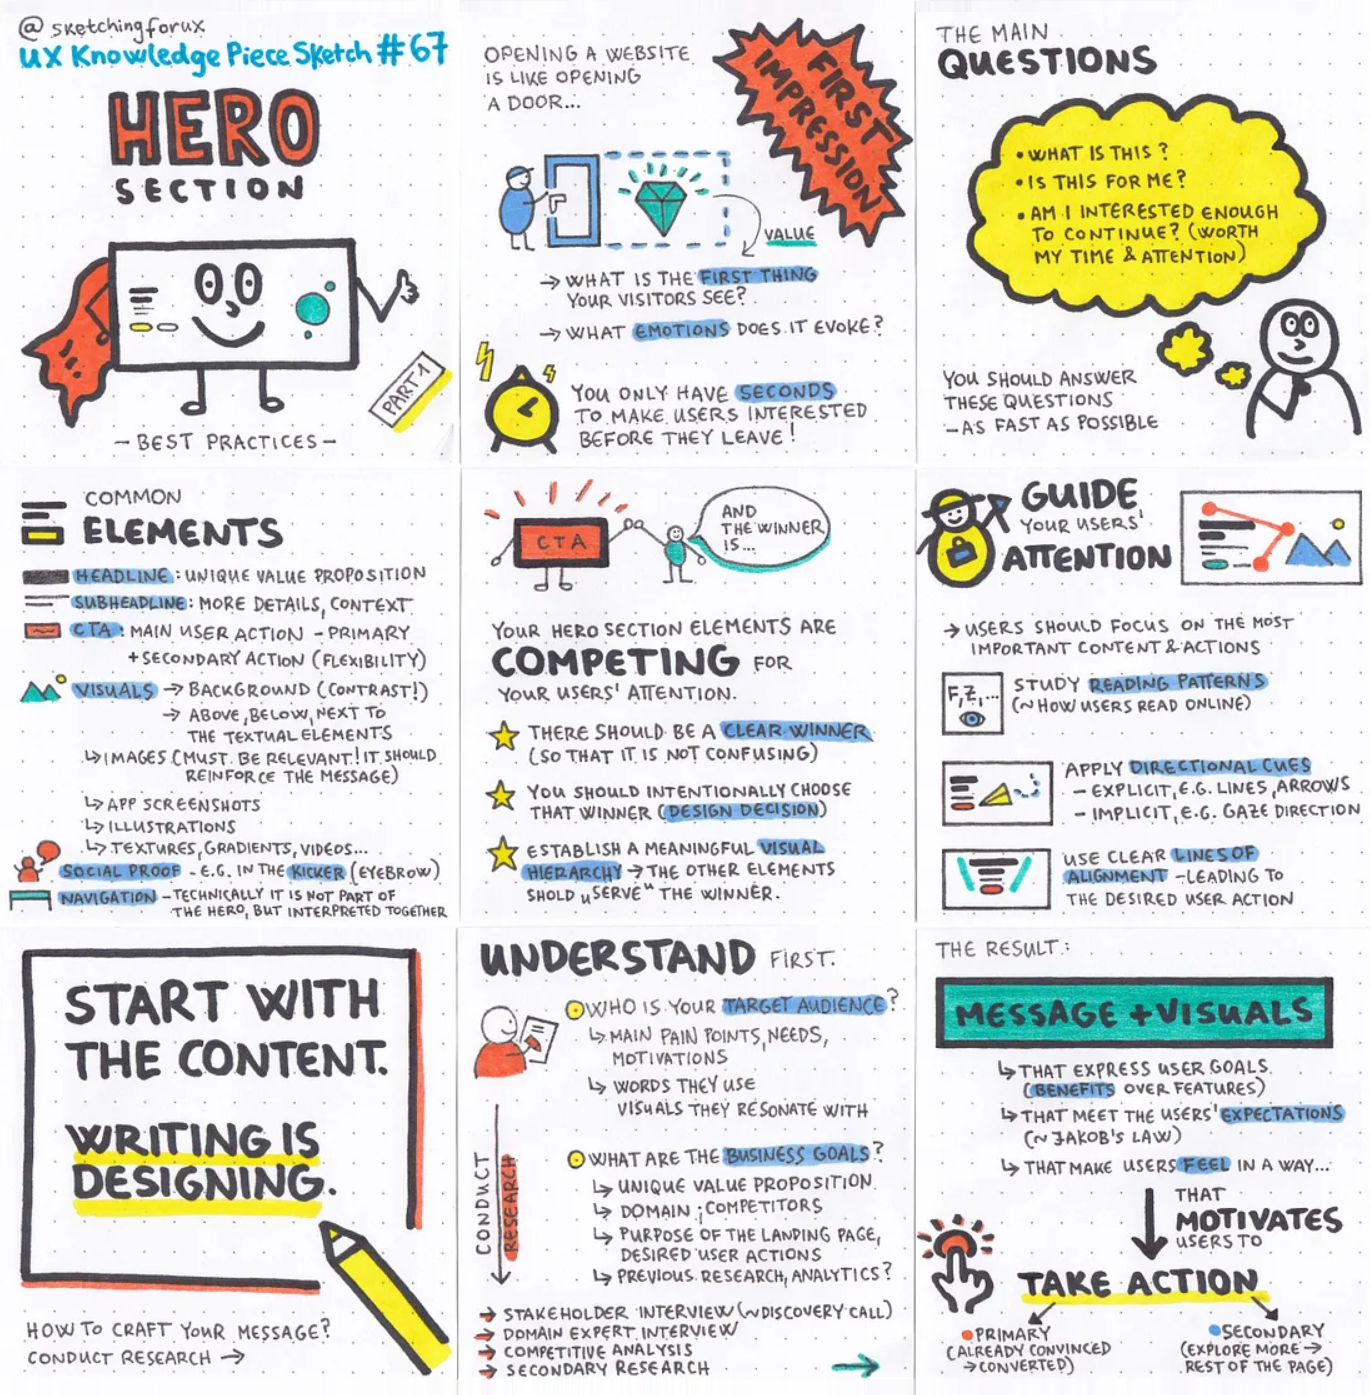 @sketchingforux
UX Knowledge Piece Sketch #67
HERO
SECTION
PART 1
- BEST PRACTICES -
OPENING A WEBSITE
IS LIKE OPENING
A DOOR...
FIRST
IMPRESSION
VALUE
→ WHAT IS THE FIRST THING
YOUR VISITORS SEE?
→ WHAT EMOTIONS DOES IT EVOKE?
YOU ONLY HAVE SECONDS
TO MAKE USERS INTERESTED
BEFORE THEY LEAVE!
THE MAIN
QUESTIONS
• WHAT IS THIS?
• IS THIS FOR ME?
• AM I INTERESTED ENOUGH
TO CONTINUE? (WORTH
MY TIME & ATTENTION)
YOU SHOULD ANSWER
THESE QUESTIONS
- AS FAST AS POSSIBLE
COMMON
ELEMENTS
HEADLINE: UNIQUE VALUE PROPOSITION
SUBHEADLINE: MORE DETAILS, CONTEXT
CTA: MAIN USER ACTION - PRIMARY
+ SECONDARY ACTION (FLEXIBILITY)
VISUALS → BACKGROUND (CONTRAST!)
→ ABOVE, BELOW, NEXT TO
THE TEXTUAL ELEMENTS
↳ IMAGES (MUST BE RELEVANT! IT SHOULD
REINFORCE THE MESSAGE)
↳ APP SCREENSHOTS
↳ ILLUSTRATIONS
↳ TEXTURES, GRADIENTS, VIDEOS...
SOCIAL PROOF - E.G. IN THE KICKER (EYEBROW)
NAVIGATION - TECHNICALLY IT IS NOT PART OF
THE HERO, BUT INTERPRETED TOGETHER
CTA
AND
THE WINNER
IS...
YOUR HERO SECTION ELEMENTS ARE
COMPETING FOR
YOUR USERS' ATTENTION.
THERE SHOULD BE A CLEAR WINNER
(SO THAT IT IS NOT CONFUSING)
YOU SHOULD INTENTIONALLY CHOOSE
THAT WINNER (DESIGN DECISION)
ESTABLISH A MEANINGFUL VISUAL
HIERARCHY → THE OTHER ELEMENTS
SHOLD „SERVE" THE WINNER.
GUIDE
YOUR USERS'
ATTENTION
→ USERS SHOULD FOCUS ON THE MOST
IMPORTANT CONTENT & ACTIONS
F, Z, ...
STUDY READING PATTERNS
(~HOW USERS READ ONLINE)
APPLY DIRECTIONAL CUES
- EXPLICIT, E.G. LINES, ARROWS
- IMPLICIT, E.G. GAZE DIRECTION
USE CLEAR LINES OF
ALIGNMENT - LEADING TO
THE DESIRED USER ACTION
START WITH
THE CONTENT.
WRITING IS
DESIGNING.
HOW TO CRAFT YOUR MESSAGE?
CONDUCT RESEARCH →
UNDERSTAND FIRST.
WHO IS YOUR TARGET AUDIENCE?
↳ MAIN PAIN POINTS, NEEDS,
MOTIVATIONS
↳ WORDS THEY USE
VISUALS THEY RESONATE WITH
WHAT ARE THE BUSINESS GOALS?
↳ UNIQUE VALUE PROPOSITION
↳ DOMAIN; COMPETITORS
↳ PURPOSE OF THE LANDING PAGE,
DESIRED USER ACTIONS
↳ PREVIOUS RESEARCH, ANALYTICS?
CONDUCT
RESEARCH
→ STAKEHOLDER INTERVIEW (~DISCOVERY CALL)
→ DOMAIN EXPERT INTERVIEW
→ COMPETITIVE ANALYSIS
→ SECONDARY RESEARCH
THE RESULT:
MESSAGE + VISUALS
↳ THAT EXPRESS USER GOALS
(BENEFITS OVER FEATURES)
↳ THAT MEET THE USERS' EXPECTATIONS
(~JAKOB'S LAW)
↳ THAT MAKE USERS FEEL IN A WAY...
THAT
MOTIVATES
USERS TO
TAKE ACTION
PRIMARY
(ALREADY CONVINCED
→ CONVERTED)
SECONDARY
(EXPLORE MORE →
REST OF THE PAGE)